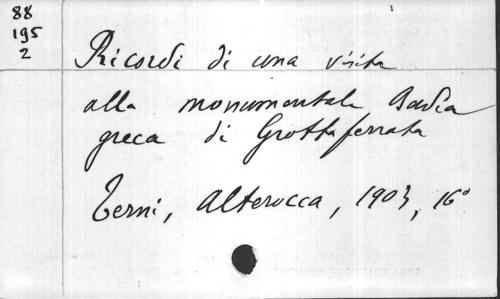 88
195
2
Ricordi di una visita
alla monumentale Badia
greca di Grottaferrata
Terni, Alterocca, 1903, 16°